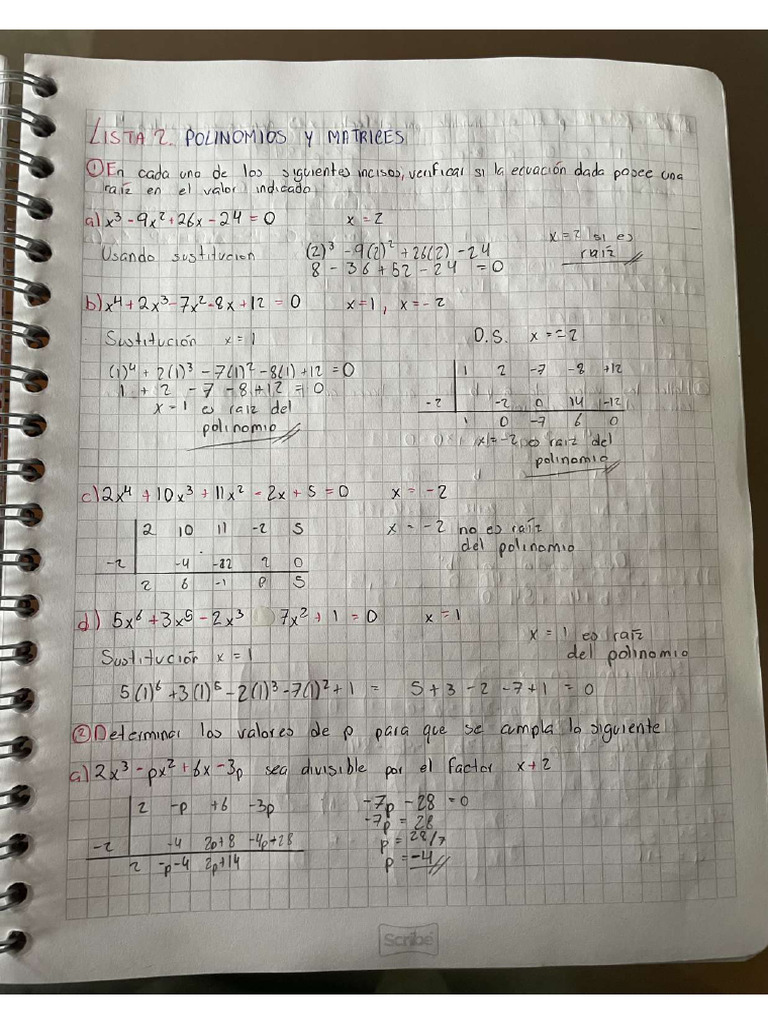 LISTA 2. POLINOMIOS Y MATRICES
① En cada uno de los siguientes incisos, verificar si la ecuación dada posee una
raíz en el valor indicado
a) x³ - 9x² + 26x - 24 = 0 x = 2
Usando sustitucion (2)³ - 9(2)² + 26(2) - 24 x = 2 si es
8 - 36 + 52 - 24 = 0 raíz
b) x⁴ + 2x³ - 7x² - 8x + 12 = 0 x = 1, x = -2
Sustitución x = 1 D.S. x = -2
(1)⁴ + 2(1)³ - 7(1)² - 8(1) + 12 = 0 1 2 -7 -8 +12
1 + 2 - 7 - 8 + 12 = 0 -2 -2 0 14 -12
x = 1 es raiz del 1 0 -7 6 0
polinomio x = -2 es raiz del
polinomio
c) 2x⁴ + 10x³ + 11x² - 2x + 5 = 0 x = -2
2 10 11 -2 5 x = -2 no es raíz
del polinomio
-2 -4 -12 2 0
2 6 -1 0 5
d) 5x⁶ + 3x⁵ - 2x³ 7x² + 1 = 0 x = 1
x = 1 es raíz
Sustitución x = 1 del polinomio
5(1)⁶ + 3(1)⁵ - 2(1)³ - 7(1)² + 1 = 5 + 3 - 2 - 7 + 1 = 0
② Determinar los valores de p para que se cumpla lo siguiente
a) 2x³ - px² + 6x - 3p sea divisible por el factor x + 2
2 -p +6 -3p -7p - 28 = 0
-7p = 28
-2 -4 2p+8 -4p+28 p = 28/7
2 -p-4 2p+14 p = -4
Scribe